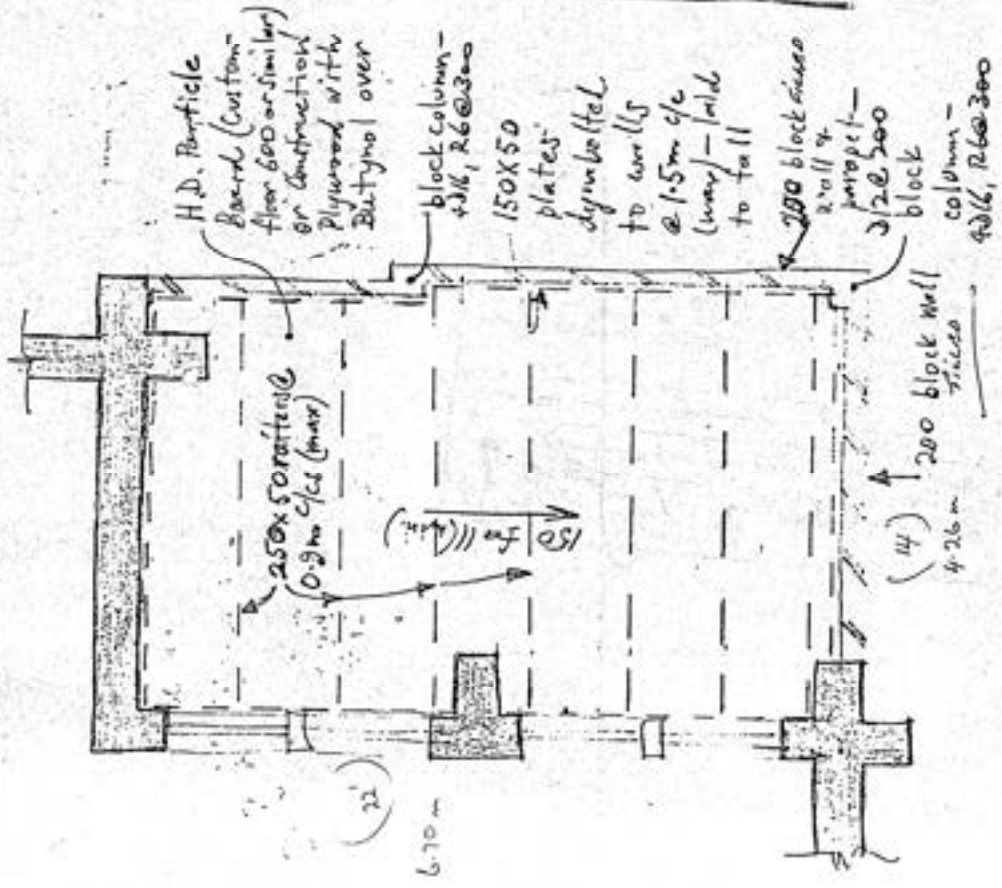 H.D. Particle
Board (Custom-
floor 600 or similar)
or Construction
Plywood with
Butynol over
block column -
4D16, R6@300
150X50
plates
dynabolted
to walls
@ 1.5m c/c
(max) - laid
to fall
200 block
wall &
parapet -
block
column -
4D16, R6@300
250x50 rafters @
0.9m c/cs (max)
150
fall
(22)
6.70m
(14)
4.26m
200 block wall